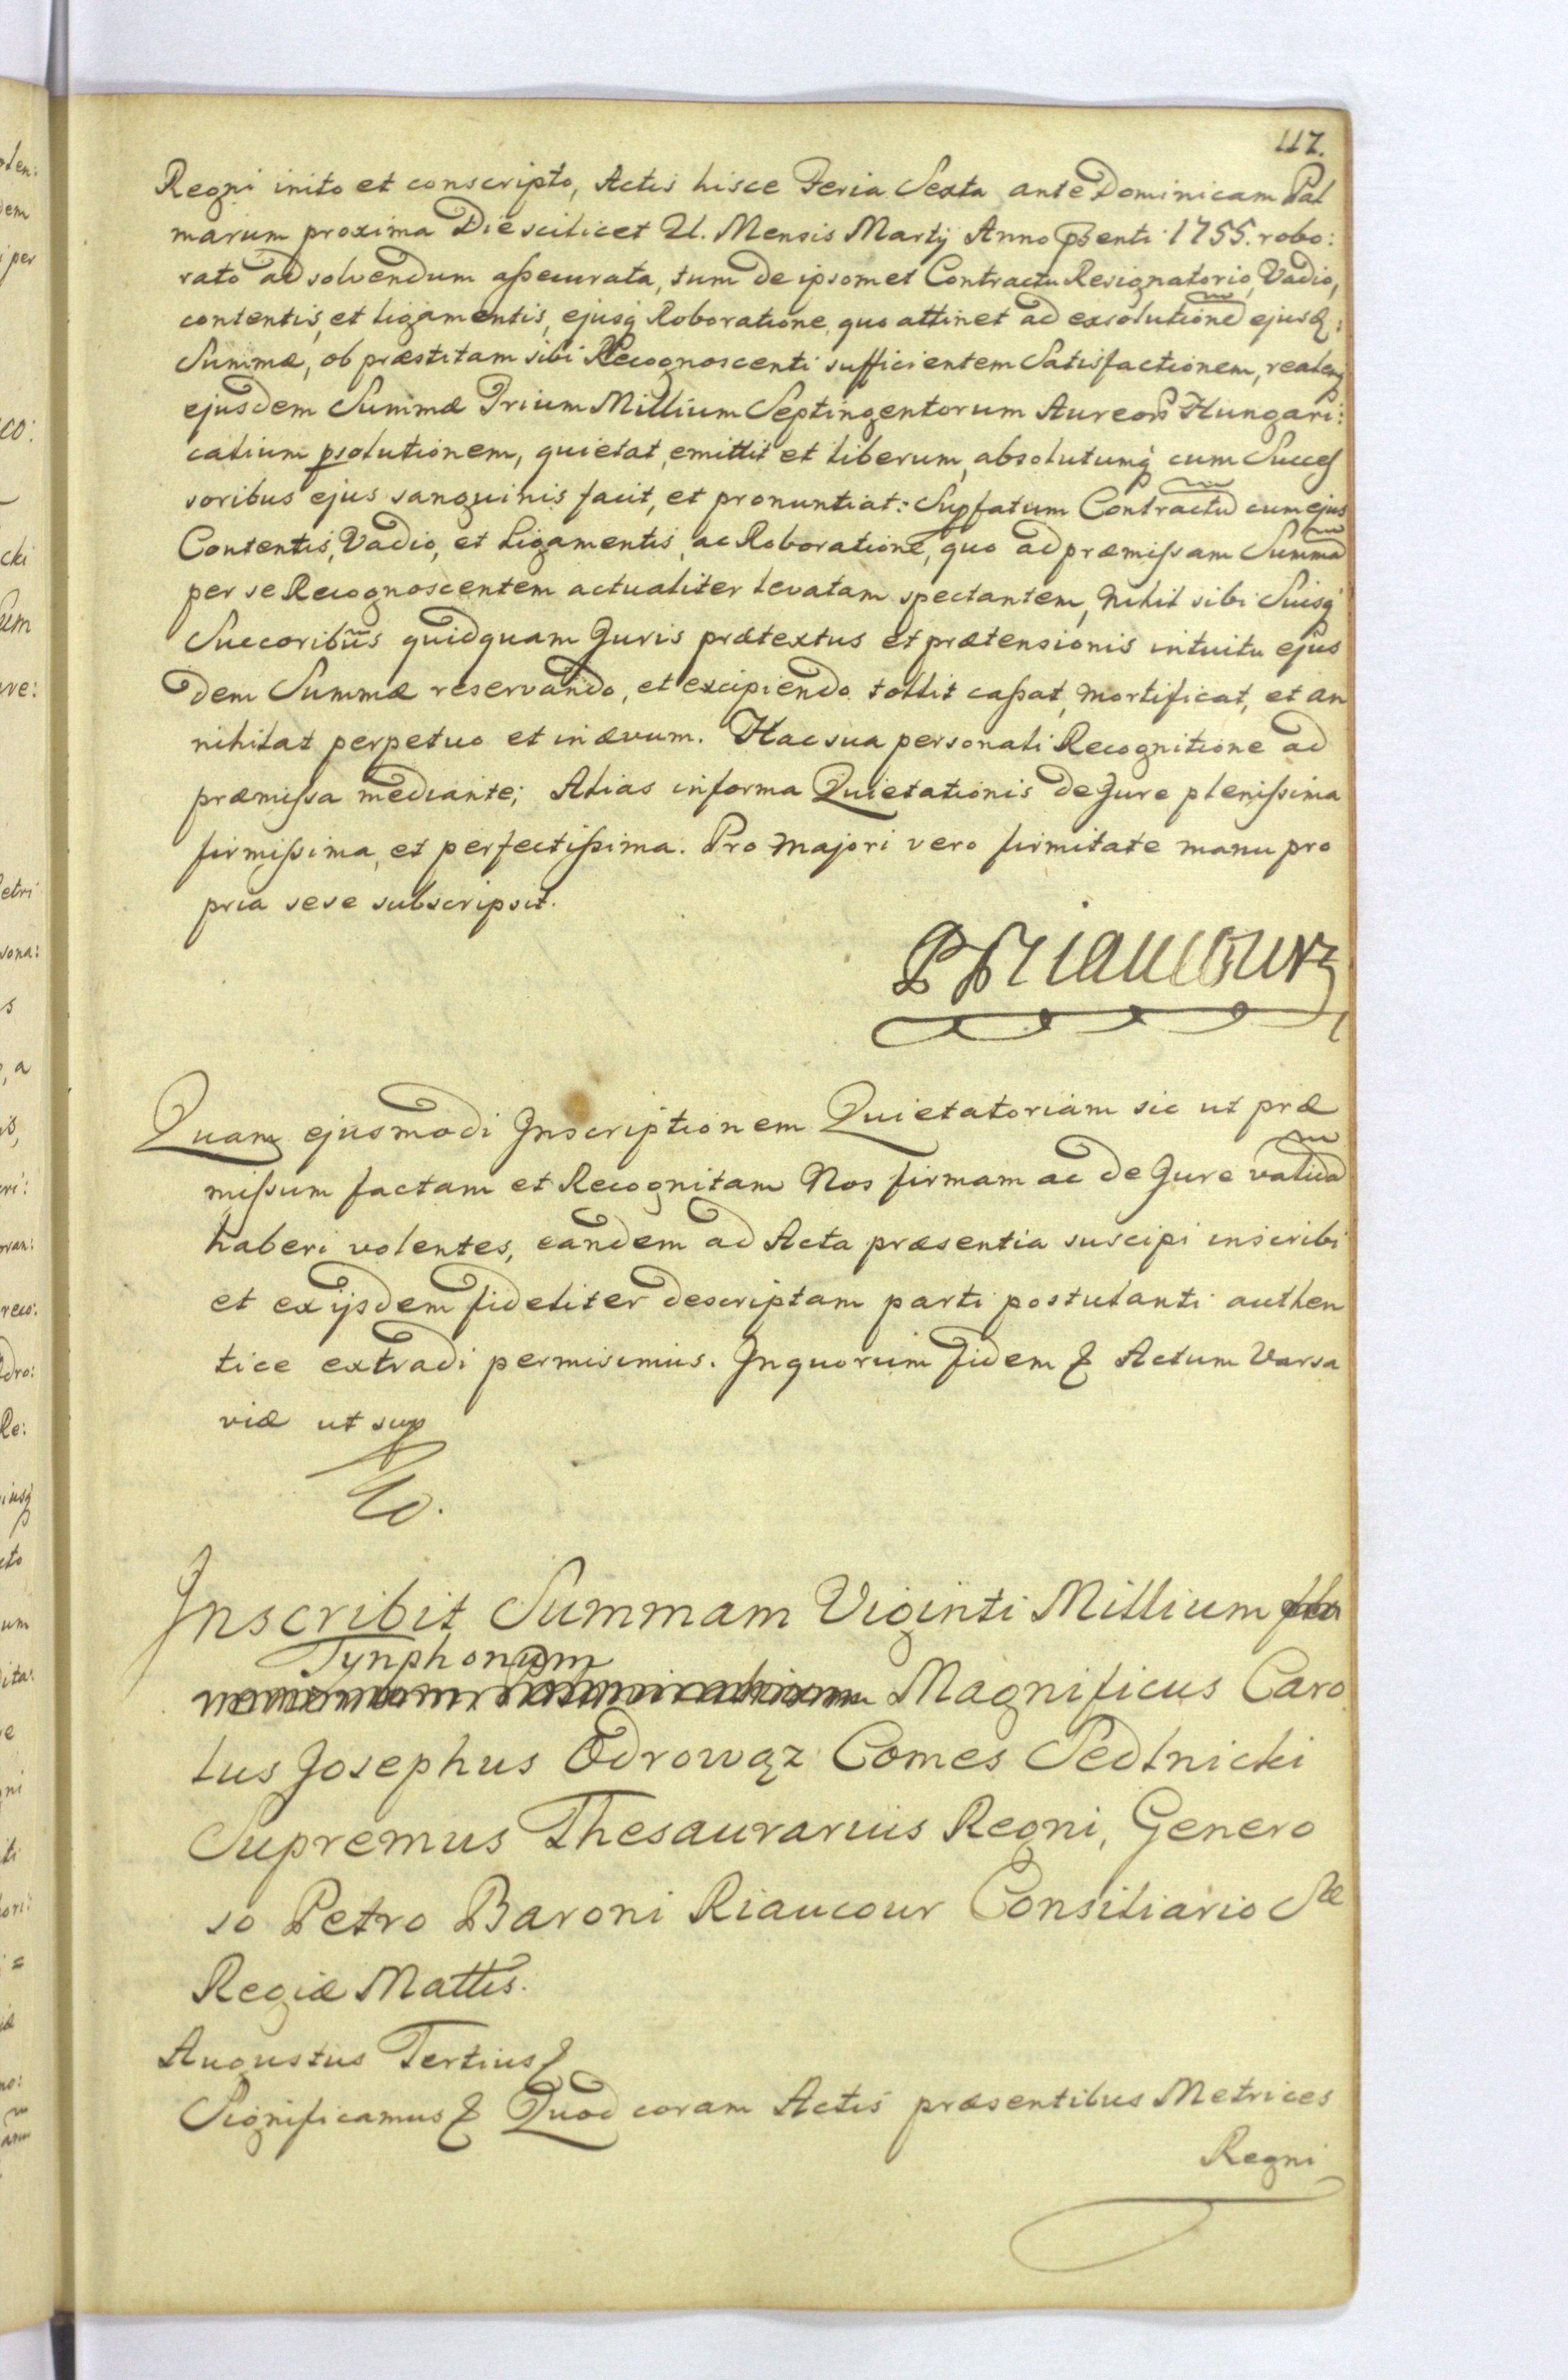 117.
Regni inito et conscripto, Actis hisce Feria Sexta ante Dominicam Pal
marum proxima Die scilicet 21. Mensis Martij Anno pnti 1755. robo:
rato ad solvendum assecurata, tum de ipsomet Contractu Resignatorio, Vadio,
contentis, et ligamentis, ejusq Roboratione, quo attinet ad exsolutione ejusd:
Summæ, ob præstitam sibi Recognoscenti sufficientem Satisfactionem, realemq
ejusdem Summæ Trium Millium Septingentorum Aureor Hungari:
calium psolutionem, quietat, emittit et liberum, absolutumq cum Succes
soribus ejus sanguinis facit, et pronuntiat: Supfatum Contractu cum ejus
Contentis, Vadio, et Ligamentis, ac Roboratione, quo ad præmissam Summa
per se Recognoscentem actualiter levatam spectantem, nihil sibi Suisq
Succoribus quidquam Juris prætextus et prætensionis intuitu ejus
dem Summæ reservando, et excipiendo tollit cassat, mortificat, et an
nihilat perpetuo et in ævum. Hac sua personali Recognitione ad
præmissa mediante; Alias in forma Quietationis de Jure plenissima
firmissima, et perfectissima. Pro majori vero firmitate manu pro
pria sese subscripsit.
P Riaucour
Quam ejusmodi Inscriptionem Quietatoriam sic ut præ
missum factam et Recognitam Nos firmam ac de Jure valida
haberi volentes, eandem ad Acta præsentia suscipi inscribi
et ex ijsdem fideliter descriptam parti postulanti authen
tice extradi permisimus. In quorum fidem & Actum Varsa
viæ ut sup
Inscribit Summam Viginti Millium
Tynphonum
Magnificus Caro
lus Josephus Odrowąz Comes Sedlnicki
Supremus Thesaurarius Regni, Genero
so Petro Baroni Riaucour Consiliario Sæ
Regiæ Mattis.
Augustus Tertius &
Significamus & Quod coram Actis præsentibus Metrices
Regni